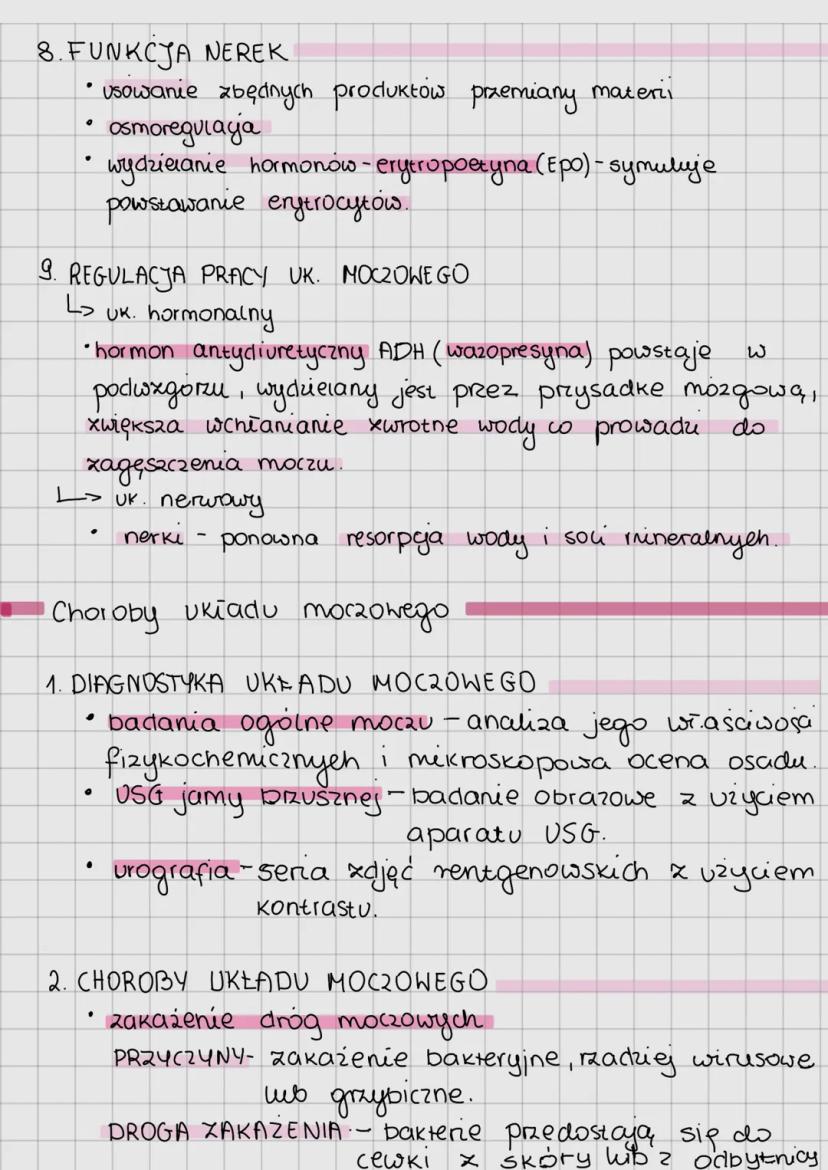 8. FUNKCJA NEREK
• usówanie zbędnych produktów przemiany materii
• osmoregulacja
• wydzielanie hormonów - erytropoetyna (Epo) - symuluje
powstawanie erytrocytów.
9. REGULACJA PRACY UK. MOCZOWEGO
↳ uk. hormonalny
• hormon antydiuretyczny ADH (wazopresyna) powstaje w
podwzgórzu, wydzielany jest przez przysadke mózgową,
zwiększa wchłanianie zwrotne wody co prowadzi do
zagęszczenia moczu.
↳ uk. nerwowy
• nerki - ponowna resorpcja wody i soli mineralnych.
Choroby układu moczowego
1. DIAGNOSTYKA UKŁADU MOCZOWEGO
• badania ogólne moczu - analiza jego właściwości
fizykochemicznych i mikroskopowa ocena osadu.
• USG jamy brzusznej - badanie obrazowe z użyciem
aparatu USG.
• urografia - seria zdjęć rentgenowskich z użyciem
kontrastu.
2. CHOROBY UKŁADU MOCZOWEGO
• zakażenie dróg moczowych
PRZYCZYNY - zakażenie bakteryjne, rzadziej wirusowe
lub grzybiczne.
DROGA ZAKAŻENIA - bakterie przedostają się do
cewki z skóry lub z odbytnicy